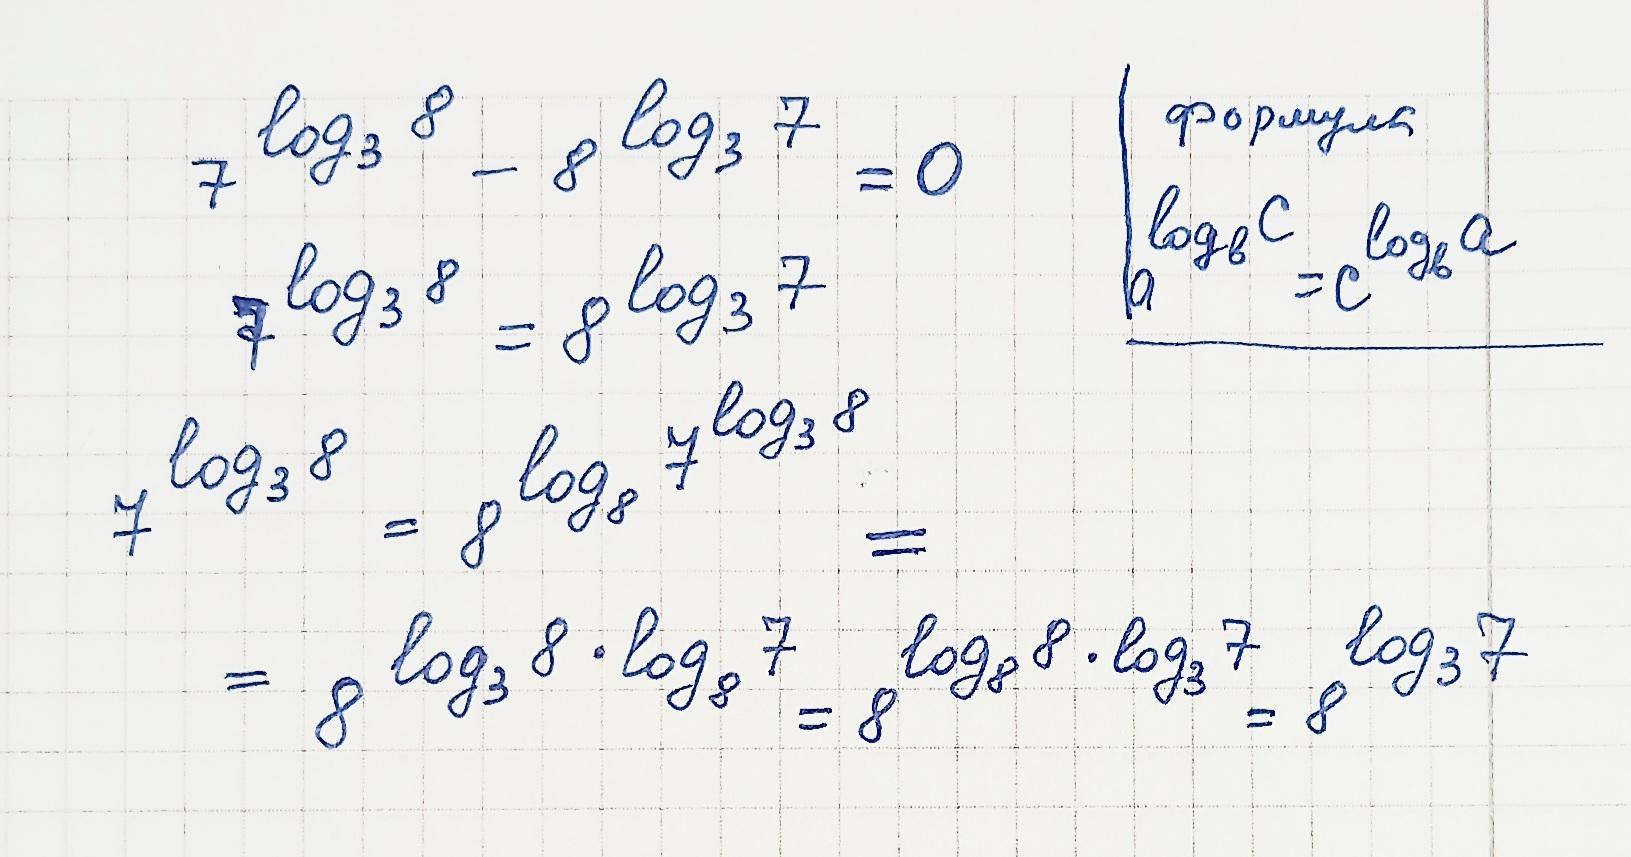 7^{log_3 8} - 8^{log_3 7} = 0
7^{log_3 8} = 8^{log_3 7}
7^{log_3 8} = 8^{log_8 7^{log_3 8}} =
= 8^{log_3 8 · log_8 7} = 8^{log_8 8 · log_3 7} = 8^{log_3 7}
формула
a^{log_b c} = c^{log_b a}